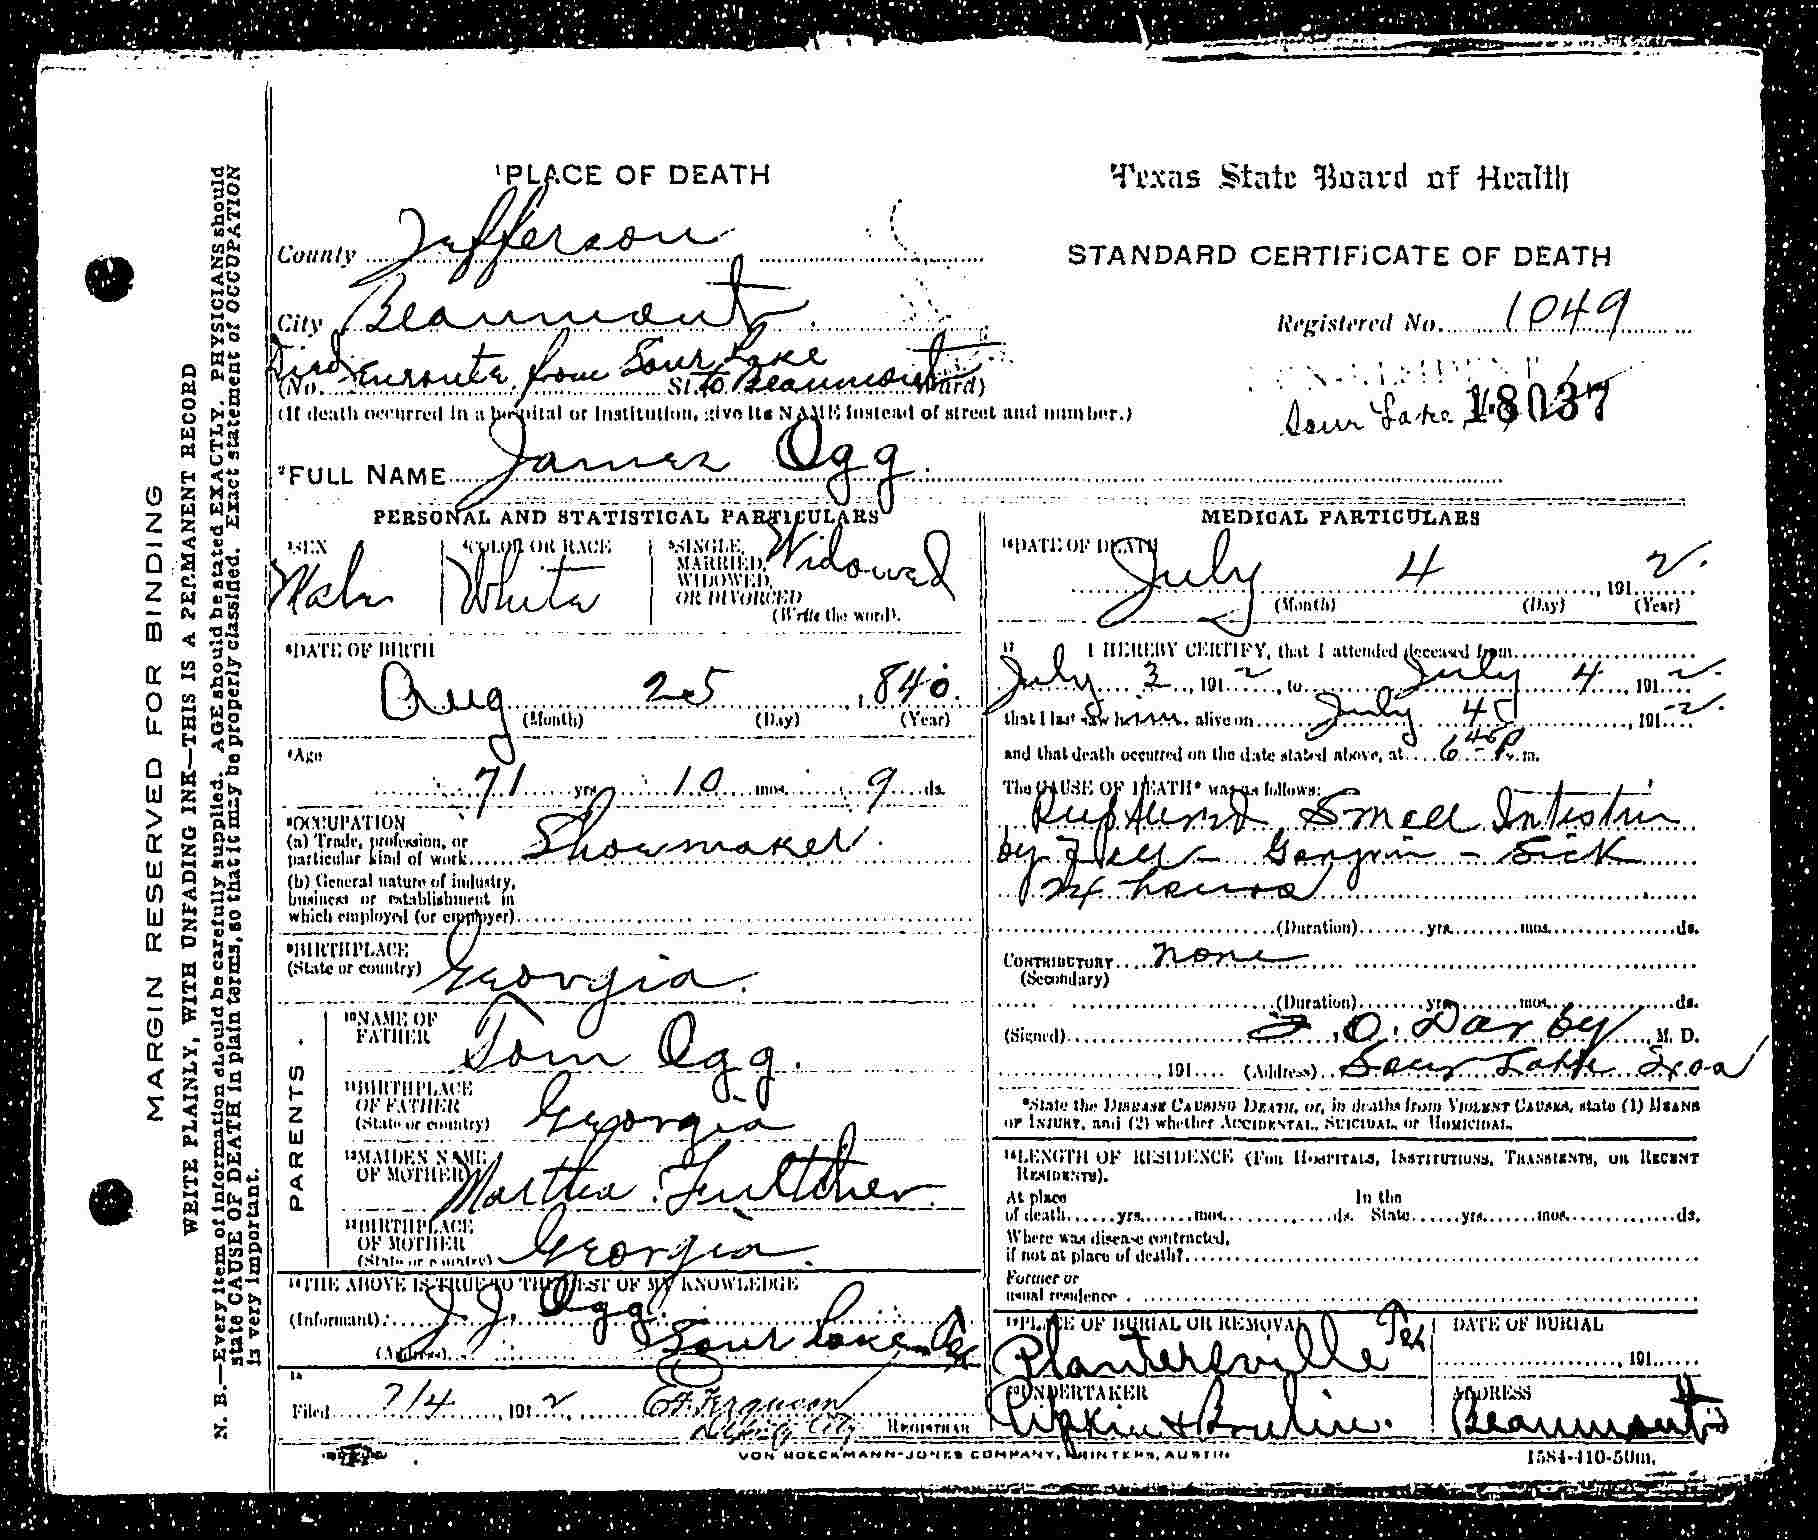 MARGIN RESERVED FOR BINDING
WRITE PLAINLY, WITH UNFADING INK—THIS IS A PERMANENT RECORD
N. B.—Every item of information should be carefully supplied. AGE should be stated EXACTLY. PHYSICIANS should
state CAUSE OF DEATH in plain terms, so that it may be properly classified. Exact statement of OCCUPATION
is very important.
1 PLACE OF DEATH
County Jefferson
City Beaumont
Died enroute from Sour Lake
(No. St. to Beaumont Ward)
(If death occurred in a hospital or institution, give its NAME instead of street and number.)
Texas State Board of Health
STANDARD CERTIFICATE OF DEATH
Registered No. 1049
Sour Lake 18037
2 FULL NAME James Ogg.
PERSONAL AND STATISTICAL PARTICULARS
3 SEX Male
4 COLOR OR RACE White
5 SINGLE, MARRIED, WIDOWED, OR DIVORCED (Write the word). Widowed
6 DATE OF BIRTH
Aug 25, 1840.
(Month) (Day) (Year)
7 Age
71 yrs. 10 mos. 9 ds.
8 OCCUPATION
(a) Trade, profession, or
particular kind of work Shoemaker.
(b) General nature of industry,
business or establishment in
which employed (or employer)
9 BIRTHPLACE
(State or country) Georgia.
PARENTS.
10 NAME OF
FATHER Tom Ogg.
11 BIRTHPLACE
OF FATHER
(State or country) Georgia
12 MAIDEN NAME
OF MOTHER Martha Fultcher.
13 BIRTHPLACE
OF MOTHER
(State or country) Georgia.
14 THE ABOVE IS TRUE TO THE BEST OF MY KNOWLEDGE
(Informant) J. J. Ogg.
(Address) Sour Lake Tex
15
Filed 7/4, 1912, Ferguson
Deputy City REGISTRAR
MEDICAL PARTICULARS
16 DATE OF DEATH
July 4, 1912.
(Month) (Day) (Year)
17 I HEREBY CERTIFY, that I attended deceased from
July 3, 1912, to July 4, 1912.
that I last saw him alive on July 4, 1912.
and that death occurred on the date stated above, at 6 45 P. m.
The CAUSE OF DEATH* was as follows:
Ruptured Small Intestin
by Fall - Gangrin - Sick
24 hours
(Duration) yrs. mos. ds.
CONTRIBUTORY none
(Secondary)
(Duration) yrs. mos. ds.
(Signed) O. Darby, M. D.
, 191 (Address) Sour Lake Texas
*State the DISEASE CAUSING DEATH, or, in deaths from VIOLENT CAUSES, state (1) MEANS
OF INJURY, and (2) whether ACCIDENTAL, SUICIDAL, or HOMICIDAL.
18 LENGTH OF RESIDENCE (FOR HOSPITALS, INSTITUTIONS, TRANSIENTS, OR RECENT
RESIDENTS).
At place In the
of death yrs. mos. ds. State yrs. mos. ds.
Where was disease contracted,
if not at place of death?
Former or
usual residence
19 PLACE OF BURIAL OR REMOVAL
Plantersville Tex
DATE OF BURIAL
, 191
20 UNDERTAKER
Pipkin & Brulin.
ADDRESS
Beaumont
VON BOECKMANN-JONES COMPANY, PRINTERS, AUSTIN
1584-410-50m.